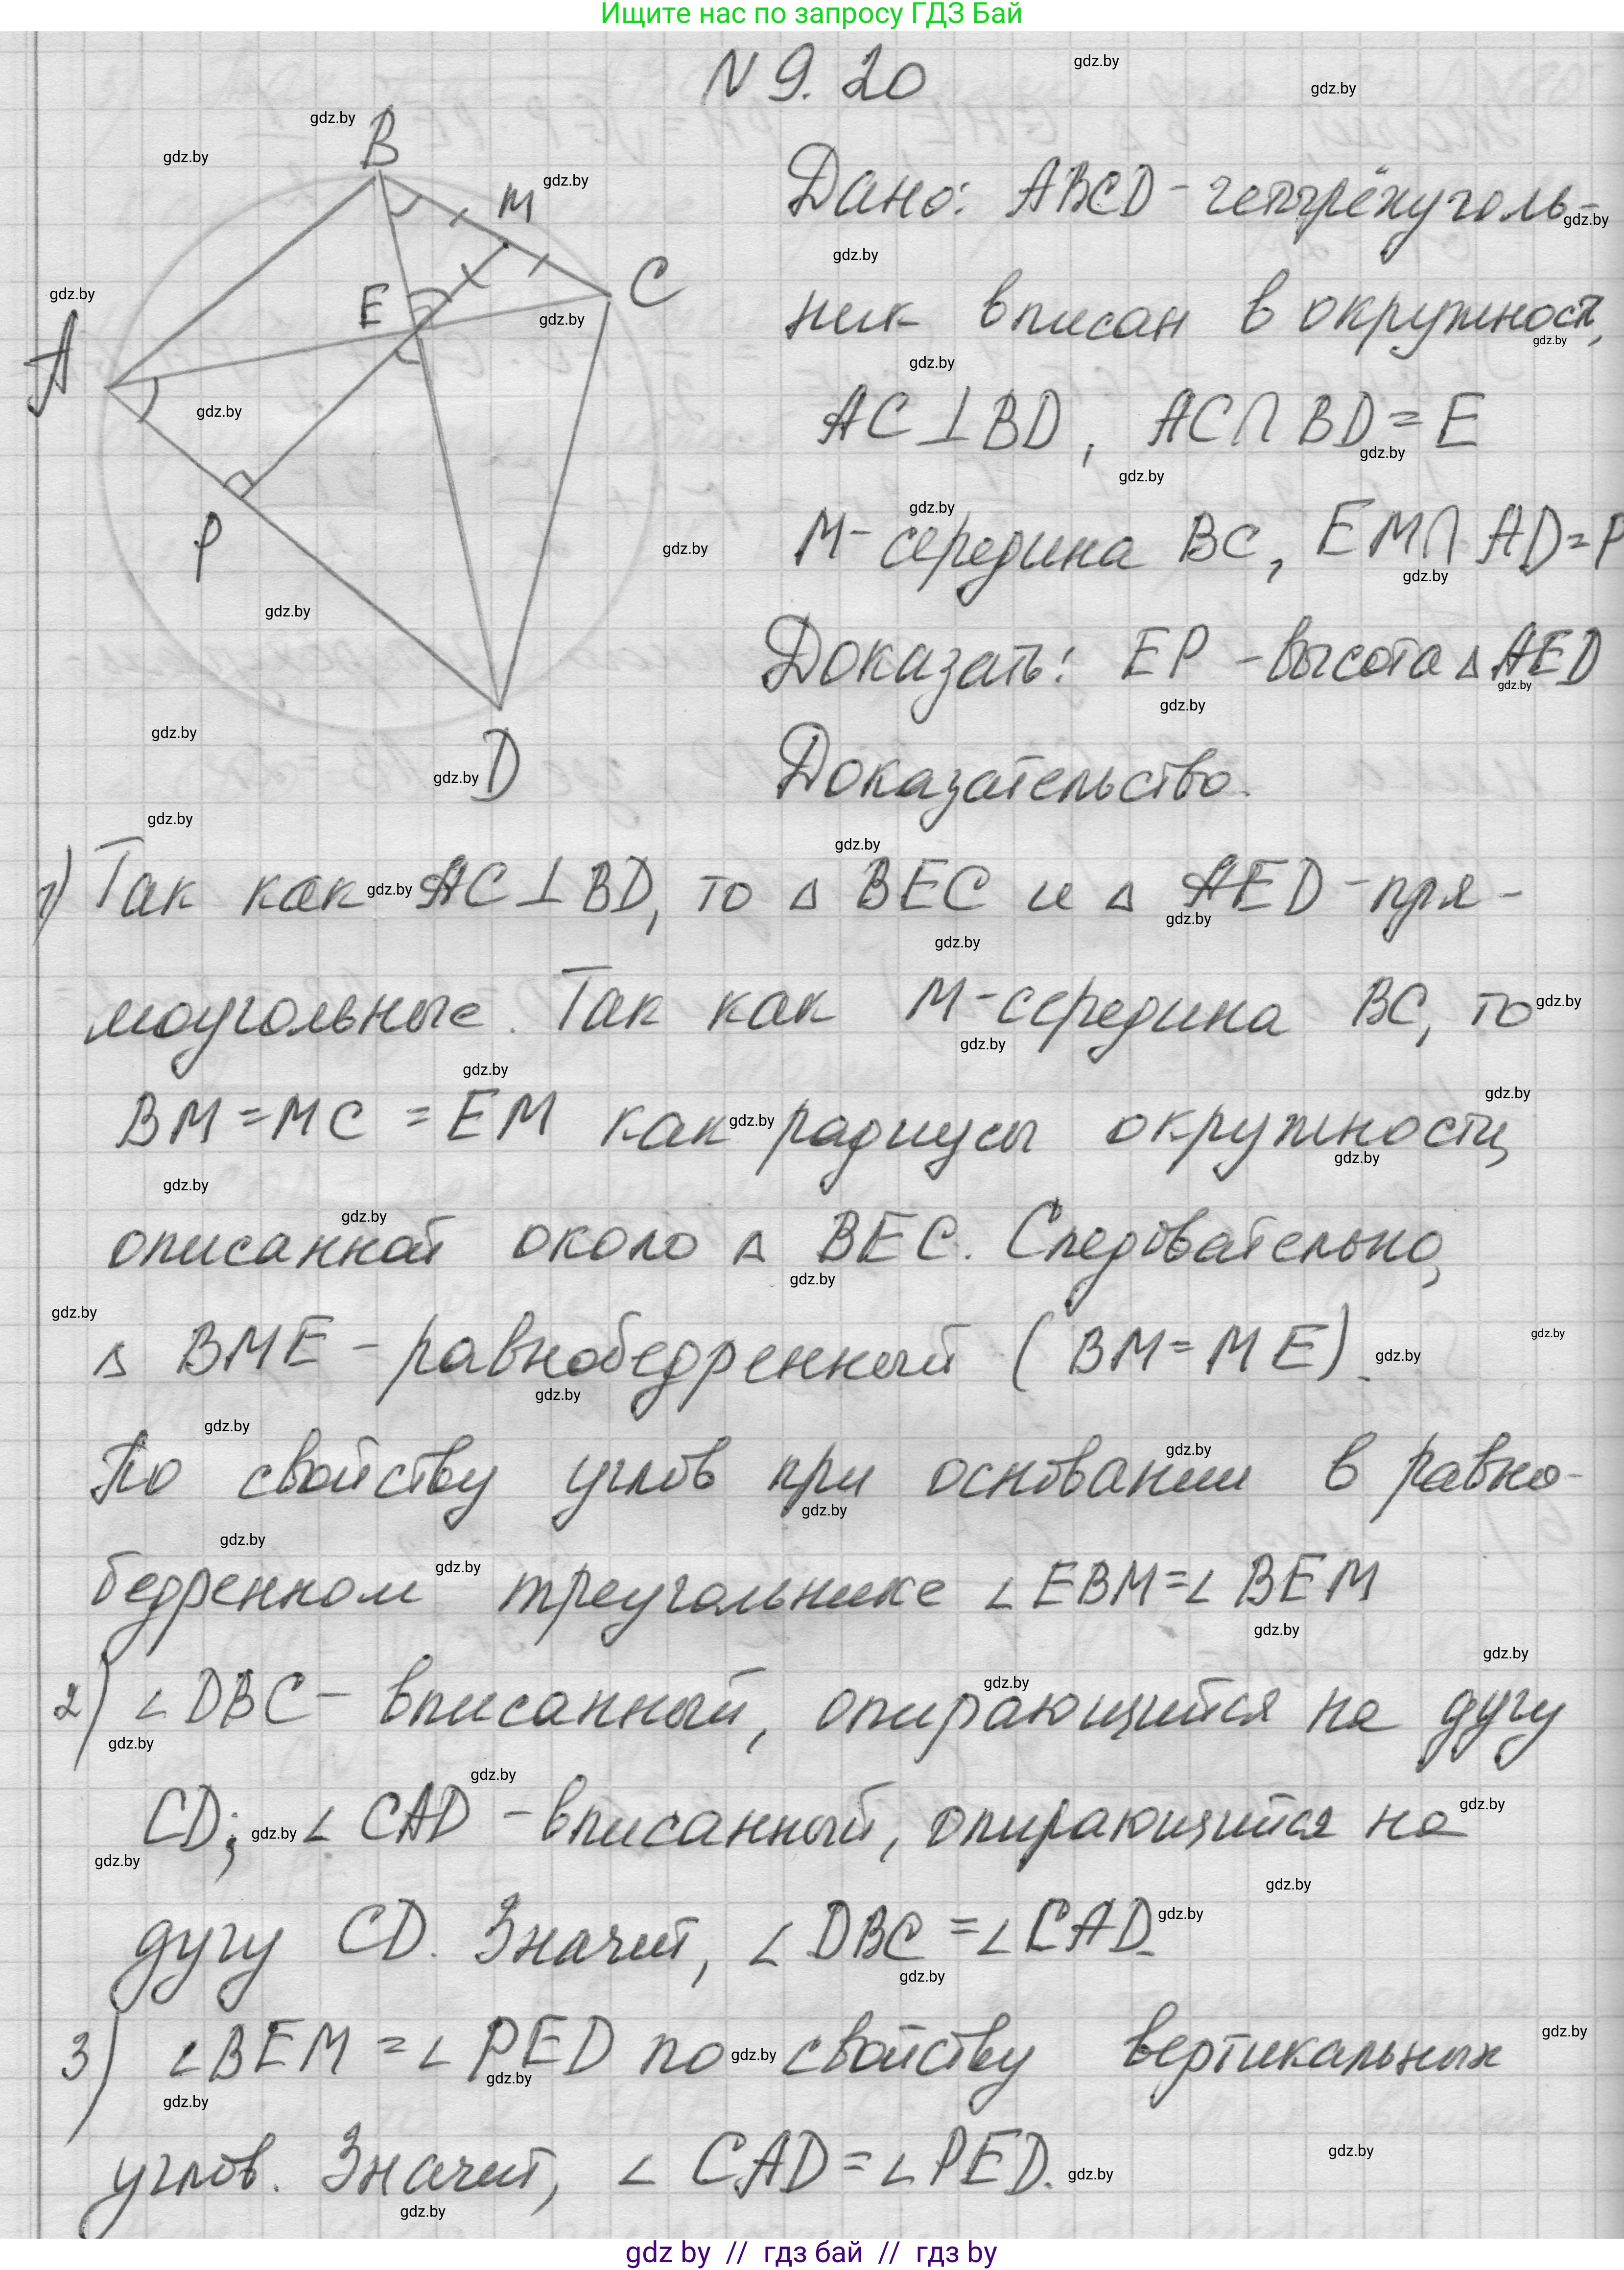 Ищите нас по запросу ГДЗ Бай
N 9. 20
B
M
E
C
A
P
D
Дано: ABCD - четырёхуголь-
ник вписан в окружност,
AC⊥BD, AC∩BD=E
M- середина BC, EM∩AD=P
Доказать: EP - высота △AED
Доказательство.
1) Так как AC⊥BD, то △ BEC и △ AED - пря-
моугольные. Так как M-середина BC, то
BM=MC=EM как радиусы окружности,
описанной около △ BEC. Следовательно,
△ BME - равнобедренный (BM=ME).
По свойству углов при основании в равно-
бедренном треугольнике ∠EBM=∠BEM
2) ∠DBC - вписанный, опирающийся на дугу
CD; ∠CAD - вписанный, опирающийся на
дугу CD. Значит, ∠DBC=∠CAD.
3) ∠BEM=∠PED по свойству вертикальных
углов. Значит, ∠CAD=∠PED.
gdz by // гдз бай // гдз by